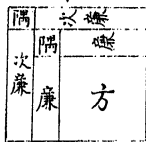 隅
次廉
隅
廉
次廉
廉
方